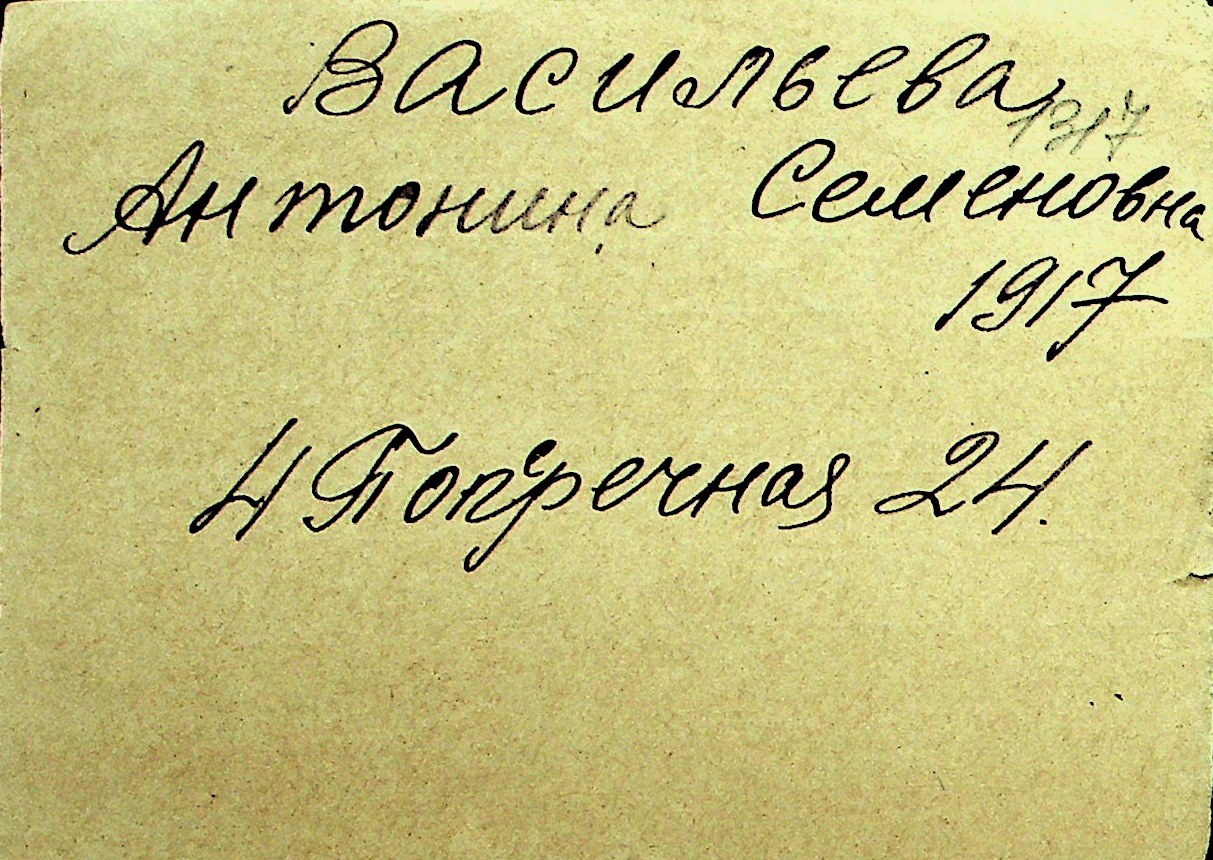 Васильева
1317
Антонина Семеновна
1917
4 Поперечная 24.